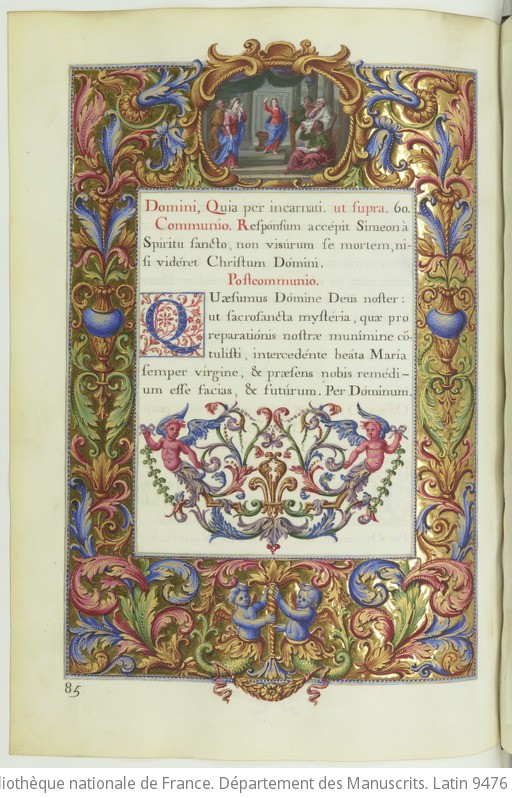 Domini, Quia per incarnati. ut supra. 60.
Communio. Responsum accépit Simeon à
Spíritu sancto, non visúrum se mortem, ni-
si vidéret Christum Dóminum.
Postcommunio.
QUæsumus Dómine Deus noster:
ut sacrosancta mystéria, quæ pro
reparatiónis nostræ munímine cō-
tulisti, intercedénte beáta María
semper vírgine, & præsens nobis remédi-
um esse facias, & futúrum. Per Dóminum.
85
liothèque nationale de France. Département des Manuscrits. Latin 9476